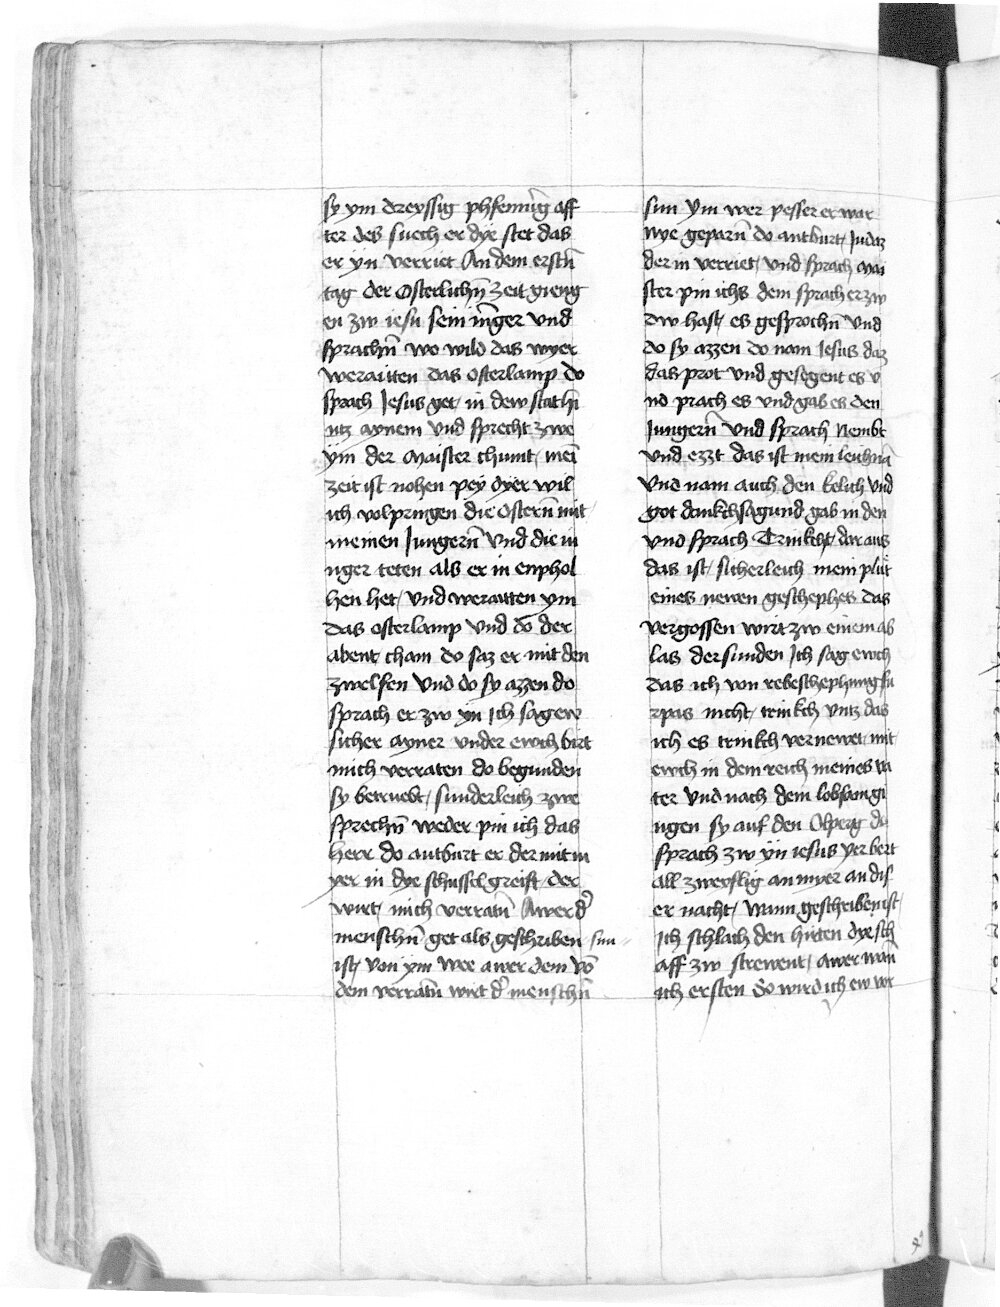 sy ym dreyssig phfennīg aff
ter des suech er dye stet das
er yn verriet An dem erstn̄
tag der Osterlichn̄ zeit gieng
en zw iesu sein iūger und
sprachn̄ wo wild das wyer
weraitten das osterlamp do
sprach Jesus get in dew stat hi
ntz aynem und sprecht zwe
ym der maister chumt mei
zeit ist nohen pey dyer wil
ich volpringen die Ostern̄ mit
meinen Jungern̄ und die iu
nger teten als er in enphol
hen het und weraitten ym
das osterlamp und do der
abent cham do saz er mit den
zwelfen und do sy azzen do
sprach er zw yn Ich sag ew
sicher ayner under ewch birt
mich verraten do begunden
sy betruebt sunderleich zwe
sprechn̄ weder pin ich das
herr do antburt er der mit m
yer in dye schussel greift der
wirt mich verratn̄ Awer d̄
menschn̄ get als geschriben sun
ist von ym wee awer dem vō
dem verratn̄ wirt d̄ menschn̄
sun ym wer pesser er war
nye geparn̄ do antburt Judas
der in verriet und sprach mai
ster pin ichs dem sprach er zw
dw hast es gesprochn̄ und
do sy azzen do nam Jesus daz
das prot und gesegent es v
nd prach es und gab es den
Jungern̄ und sprach Nembt
und ezzt das ist mein leichnā
und nam auch den kelich und
got dankchsagund gab in den
und sprach Trinkcht dar aus
das ist sicherleich mein plut
eines newen geschephes das
vergossen wirt zw einem ab
las der sunden Ich sag ewch
das ich von rebeschephung fu
rpas nicht trinkch untz das
ich es trinkch vernewet mit
ewch in dem reich meines va
ter und nach dem lobsam gi
ngen sy auf den Olperg do
sprach zw yn iesus yer bert
all zweyflig an myer an dis
er nacht wann geschriben ist
Ich schlach den hirten dye sch
aff zw strewent awer wan̄
ich ersten do wird ich ew vor